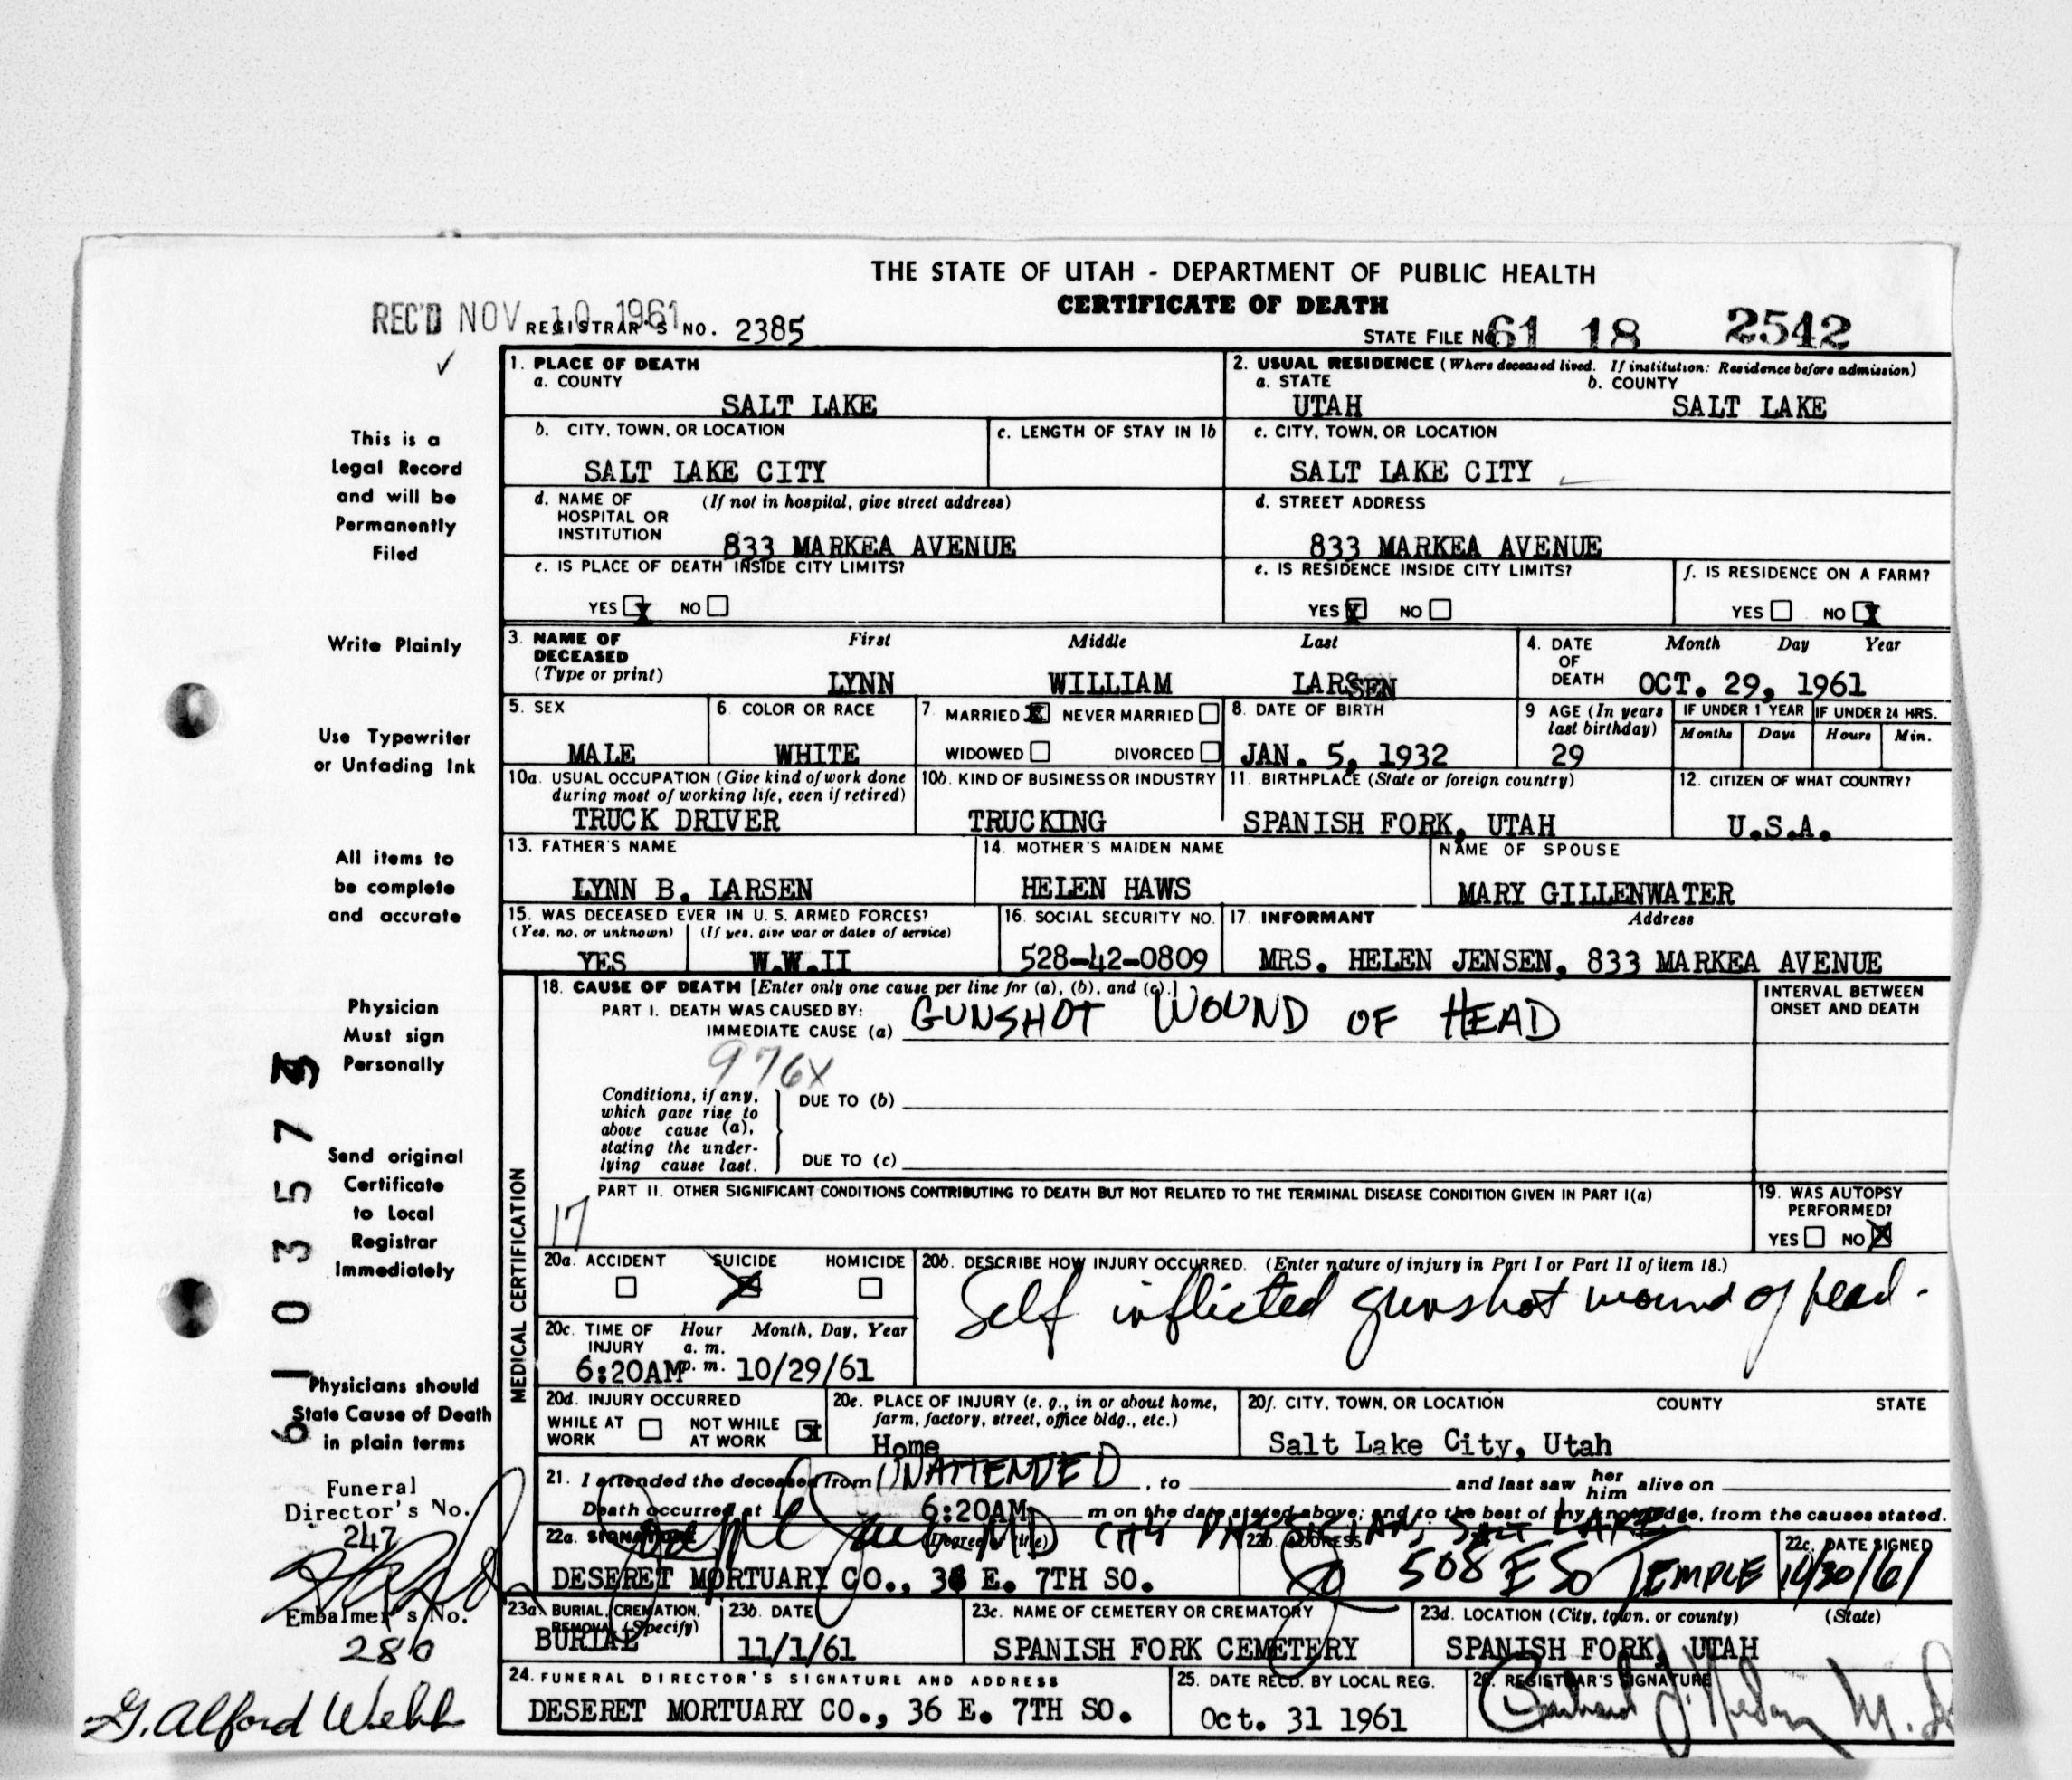 THE STATE OF UTAH - DEPARTMENT OF PUBLIC HEALTH
CERTIFICATE OF DEATH
REC'D NOV 10 1961 REGISTRAR'S NO. 2385
STATE FILE NO. 61 18 2542
This is a
Legal Record
and will be
Permanently
Filed
Write Plainly
Use Typewriter
or Unfading Ink
All items to
be complete
and accurate
Physician
Must sign
Personally
Send original
Certificate
to Local
Registrar
Immediately
Physicians should
State Cause of Death
in plain terms
Funeral
Director's No.
247
Embalmer's No.
280
G. Alford Webb
1. PLACE OF DEATH
a. COUNTY
SALT LAKE
2. USUAL RESIDENCE (Where deceased lived. If institution: Residence before admission)
a. STATE b. COUNTY
UTAH SALT LAKE
b. CITY, TOWN, OR LOCATION c. LENGTH OF STAY IN 1b
SALT LAKE CITY
c. CITY, TOWN, OR LOCATION
SALT LAKE CITY
d. NAME OF HOSPITAL OR INSTITUTION (If not in hospital, give street address)
833 MARKEA AVENUE
d. STREET ADDRESS
833 MARKEA AVENUE
e. IS PLACE OF DEATH INSIDE CITY LIMITS?
YES X NO
e. IS RESIDENCE INSIDE CITY LIMITS?
YES X NO
f. IS RESIDENCE ON A FARM?
YES NO X
3. NAME OF DECEASED (Type or print) First Middle Last
LYNN WILLIAM LARSEN
4. DATE OF DEATH Month Day Year
OCT. 29, 1961
5. SEX
MALE
6. COLOR OR RACE
WHITE
7. MARRIED X NEVER MARRIED
WIDOWED DIVORCED
8. DATE OF BIRTH
JAN. 5, 1932
9 AGE (In years last birthday)
29
IF UNDER 1 YEAR IF UNDER 24 HRS.
Months Days Hours Min.
10a. USUAL OCCUPATION (Give kind of work done during most of working life, even if retired)
TRUCK DRIVER
10b. KIND OF BUSINESS OR INDUSTRY
TRUCKING
11. BIRTHPLACE (State or foreign country)
SPANISH FORK, UTAH
12. CITIZEN OF WHAT COUNTRY?
U.S.A.
13. FATHER'S NAME
LYNN B. LARSEN
14. MOTHER'S MAIDEN NAME
HELEN HAWS
NAME OF SPOUSE
MARY GILLENWATER
15. WAS DECEASED EVER IN U. S. ARMED FORCES?
(Yes, no, or unknown) (If yes, give war or dates of service)
YES W.W.II
16. SOCIAL SECURITY NO.
528-42-0809
17. INFORMANT Address
MRS. HELEN JENSEN, 833 MARKEA AVENUE
MEDICAL CERTIFICATION
18. CAUSE OF DEATH [Enter only one cause per line for (a), (b), and (c).]
PART I. DEATH WAS CAUSED BY:
IMMEDIATE CAUSE (a) GUNSHOT WOUND OF HEAD
INTERVAL BETWEEN ONSET AND DEATH
976X
Conditions, if any, which gave rise to above cause (a), stating the underlying cause last.
DUE TO (b)
DUE TO (c)
PART II. OTHER SIGNIFICANT CONDITIONS CONTRIBUTING TO DEATH BUT NOT RELATED TO THE TERMINAL DISEASE CONDITION GIVEN IN PART I(a)
17
19. WAS AUTOPSY PERFORMED?
YES NO X
20a. ACCIDENT SUICIDE X HOMICIDE
20b. DESCRIBE HOW INJURY OCCURRED. (Enter nature of injury in Part I or Part II of item 18.)
Self inflicted gunshot wound of head.
20c. TIME OF INJURY Hour a. m. p. m. Month, Day, Year
6:20AM 10/29/61
20d. INJURY OCCURRED
WHILE AT WORK NOT WHILE AT WORK X
20e. PLACE OF INJURY (e. g., in or about home, farm, factory, street, office bldg., etc.)
Home
20f. CITY, TOWN, OR LOCATION COUNTY STATE
Salt Lake City, Utah
21. I attended the deceased from UNATTENDED, to and last saw her him alive on
Death occurred at 6:20AM m on the date stated above; and to the best of my knowledge, from the causes stated.
22a. SIGNATURE (Degree or title) MD CITY PHYSICIAN, SALT LAKE
DESERET MORTUARY CO., 36 E. 7TH SO.
22b. ADDRESS
508 E SO TEMPLE
22c. DATE SIGNED
10/30/61
23a. BURIAL, CREMATION, REMOVAL (Specify)
BURIAL
23b. DATE
11/1/61
23c. NAME OF CEMETERY OR CREMATORY
SPANISH FORK CEMETERY
23d. LOCATION (City, town, or county) (State)
SPANISH FORK, UTAH
24. FUNERAL DIRECTOR'S SIGNATURE AND ADDRESS
DESERET MORTUARY CO., 36 E. 7TH SO.
25. DATE RECD. BY LOCAL REG.
Oct. 31 1961
26. REGISTRAR'S SIGNATURE